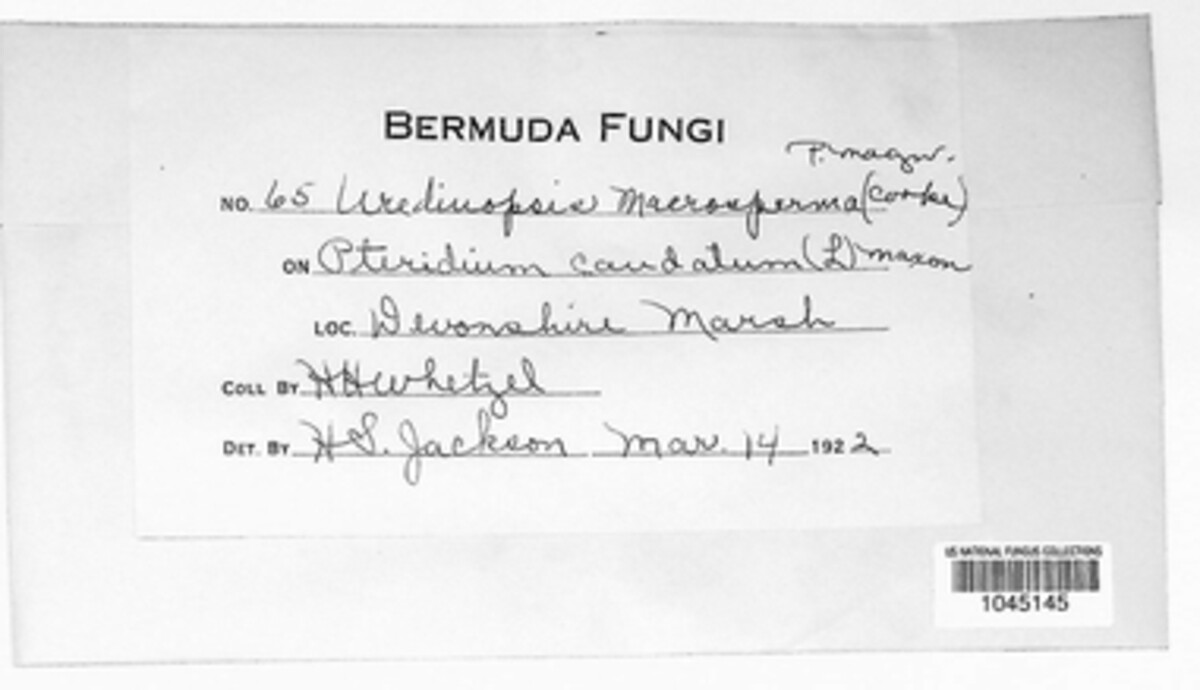 BERMUDA FUNGI
P. Magn.
NO. 65 Uredinopsis Macrosperma (Cooke)
ON Pteridium caudatum (L) Maxon
LOC. Devonshire Marsh
COLL BY HHWhetzel
DET. BY H S. Jackson Mar. 14 1922
US NATIONAL FUNGUS COLLECTIONS
1045145